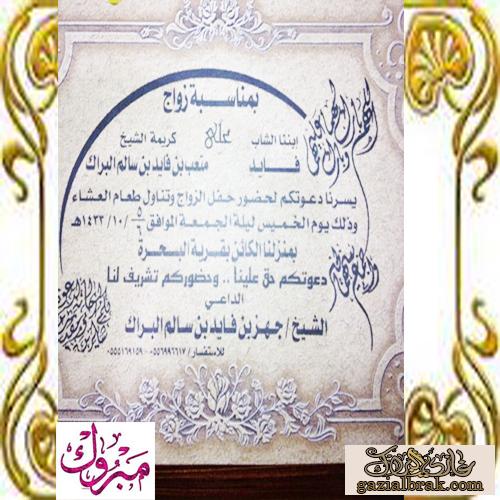 بمناسبة زواج
ابننا الشاب على كريمة الشيخ
فايد متعب بن فايد بن سالم البراك
يسرنا دعوتكم لحضور حفل الزواج وتناول طعام العشاء
وذلك يوم الخميس ليلة الجمعة الموافق ٥-٦ /١٠/ ١٤٣٣هـ
بمنزلنا الكائن بقرية البحرة
دعوتكم حق علينا .. وحضوركم تشريف لنا
الداعي
الشيخ / جهز بن فايد بن سالم البراك
للاستفسار / ٠٥٥٦٩٩٦٦١٧ - ٠٥٥٥١٦٩١٥٩
مبروك
gazialbrak.com